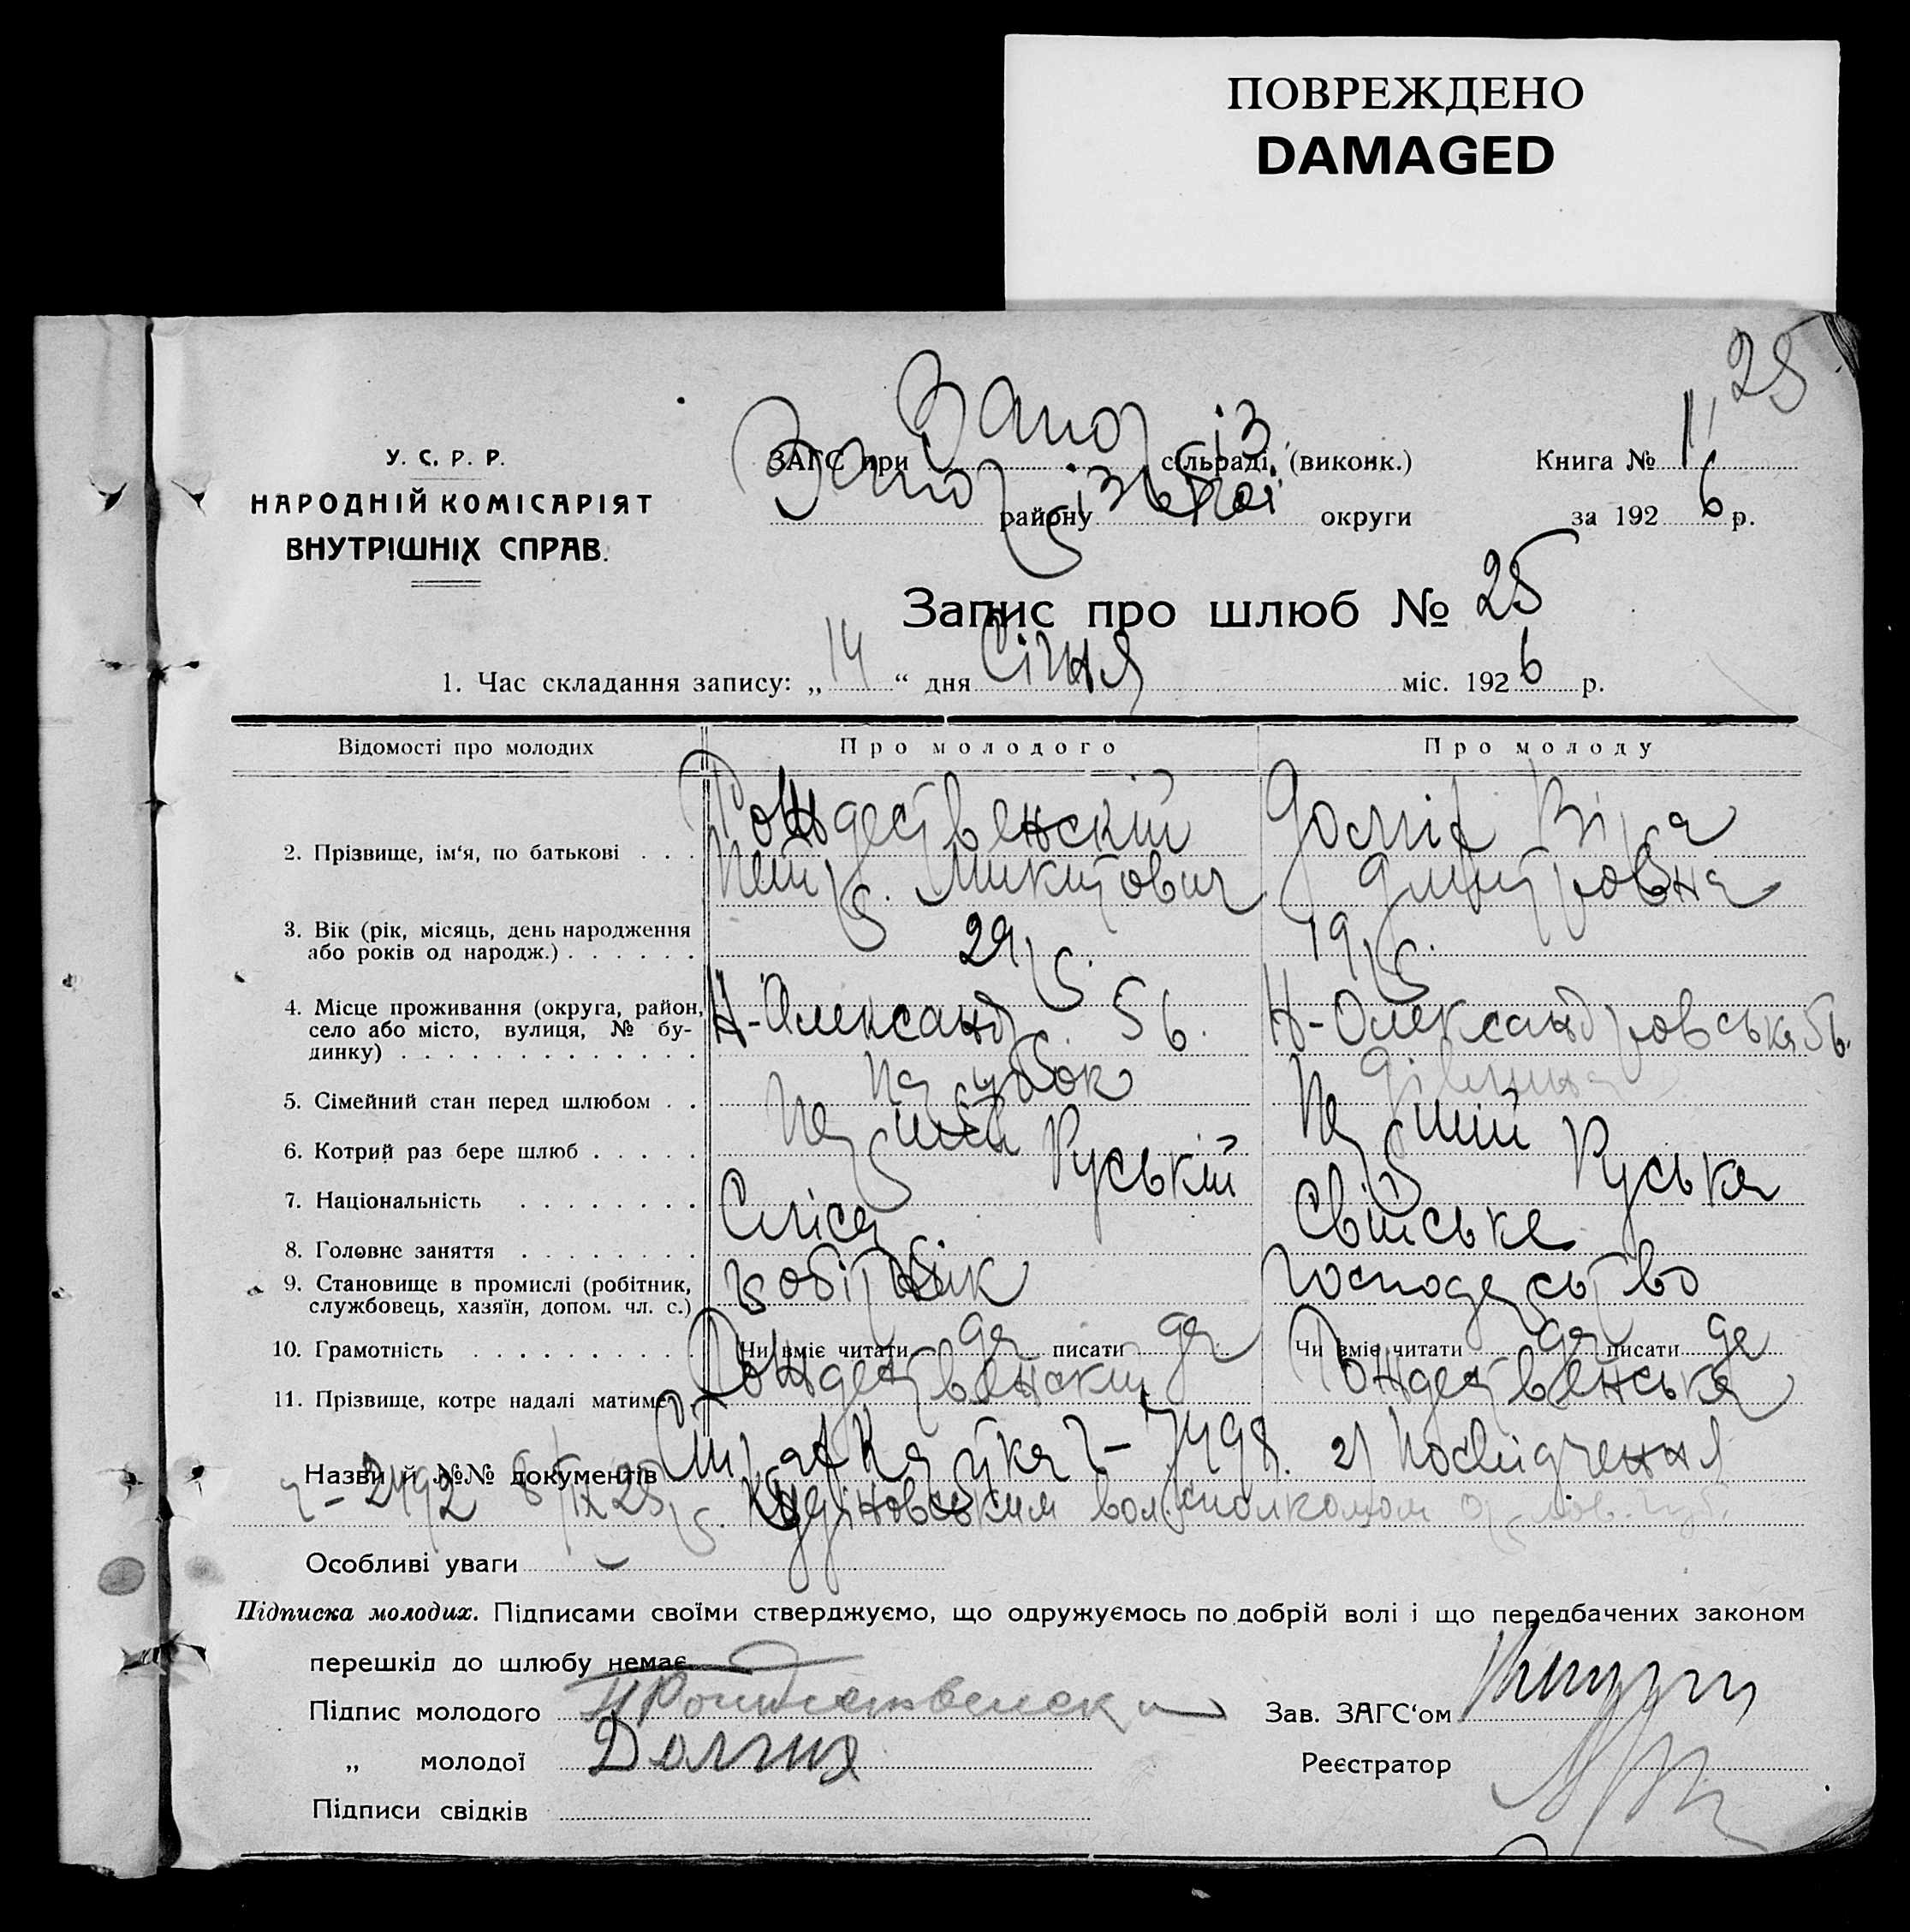 ПОВРЕЖДЕНО
DAMAGED
25
У. С. Р. Р.
НАРОДНІЙ КОМІСАРІЯТ
ВНУТРІШНІХ СПРАВ.
ЗАГС при Запоріз. сільраді (виконк.)
Запорізької району округи
Книга № 1
за 1926 р.
Запис про шлюб № 25
1. Час складання запису: „14“ дня Січня міс. 1926 р.
Відомості про молодих Про молодого Про молоду
2. Прізвище, ім‘я, по батькові . . . Рождественскій Петр. Микитович Віра Дмитровна
3. Вік (рік, місяць, день народження або років од народж.) . . . . . . 29 р. 19 р.
4. Місце проживання (округа, район, село або місто, вулиця, № будинку) . . . . . . . . . . . . . Н-Олександр. 56. Н-Олександровська 56.
5. Сімейний стан перед шлюбом . . Парубок Дівчина
6. Котрий раз бере шлюб . . . . . Перший Перший
7. Національність . . . . . . . . Руський Руська
8. Головне заняття . . . . . . . . Слісар. Свійське
9. Становище в промислі (робітник, службовець, хазяїн, допом. чл. с.) робітник господарство
10. Грамотність . . . . . . . . . . Чи вміє читати да писати да Чи вміє читати да писати да
11. Прізвище, котре надалі матиме . Рождественский Рождественська
Назви й №№ документів 7498. 2) Посвідчення
ч-2492 25 р.
Особливі уваги
Підписка молодих. Підписами своїми стверджуємо, що одружуємось по добрій волі і що передбачених законом
перешкід до шлюбу немає.
Підпис молодого П Рождественский Зав. ЗАГС‘ом
„ молодої Реєстратор
Підписи свідків